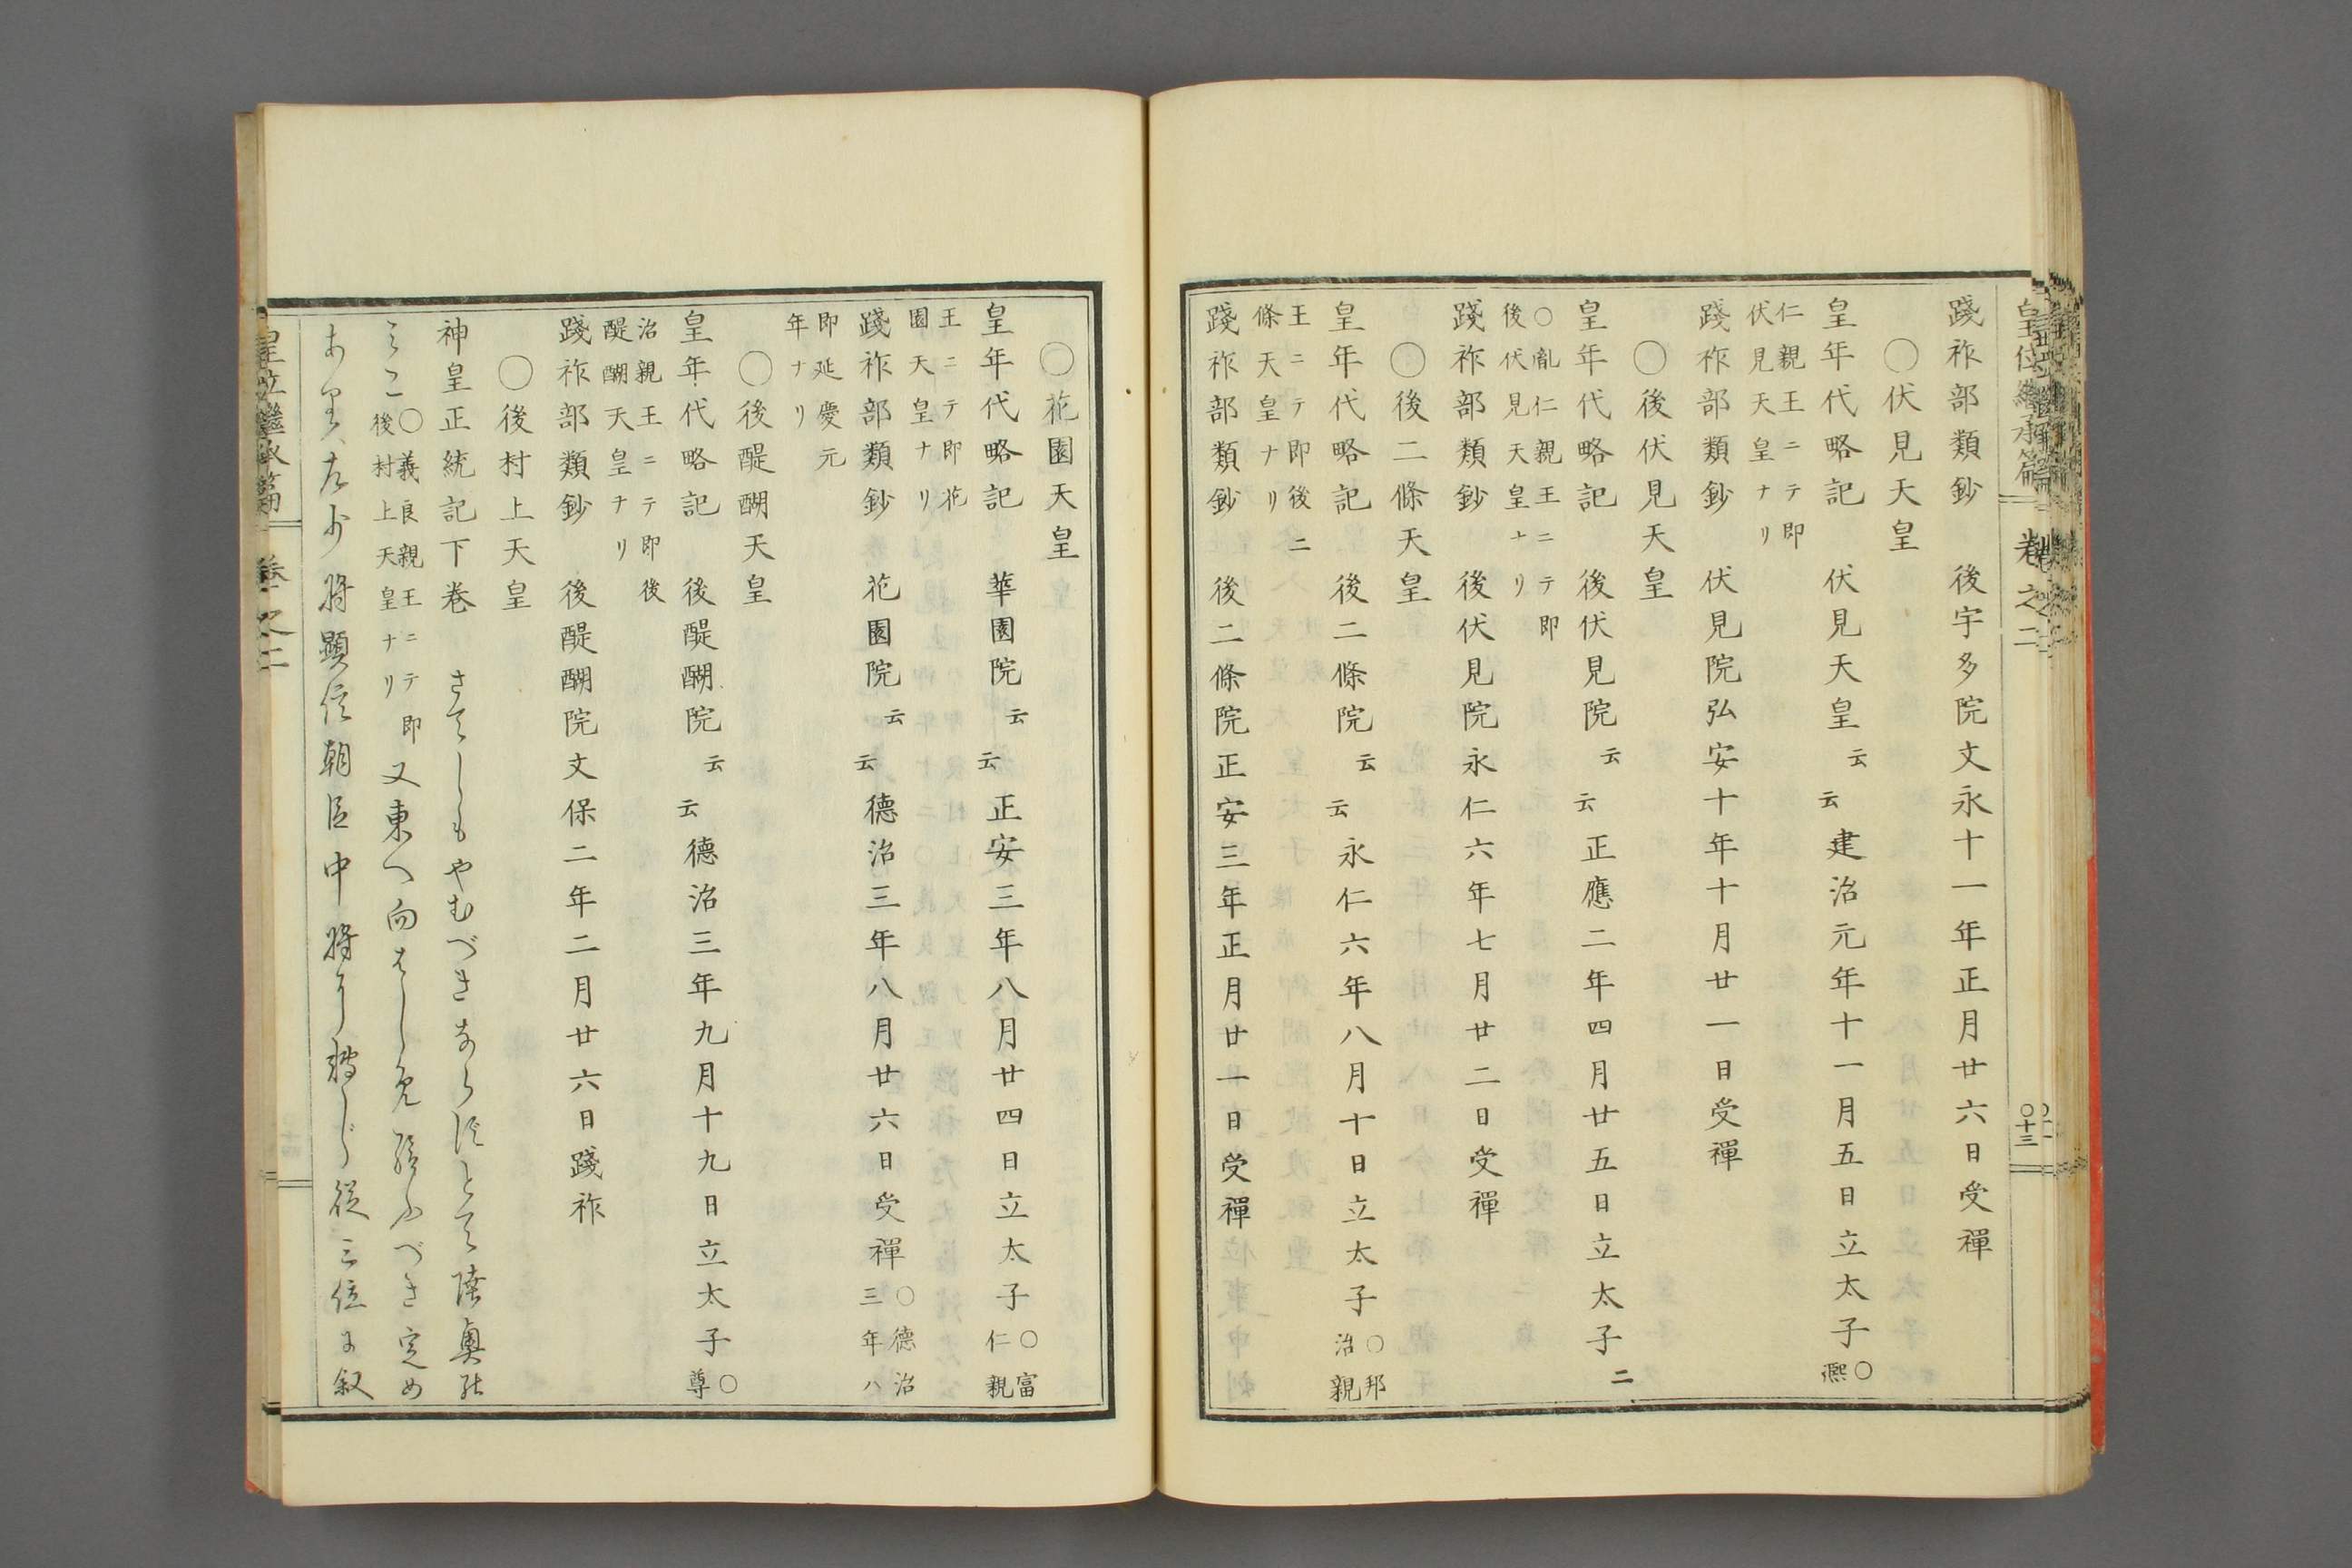 皇位繼承篇 卷之二 〇十三
踐祚部類鈔 後宇多院文永十一年正月廿六日受禪
〇伏見天皇
皇年代略記 伏見天皇云云建治元年十一月五日立太子〇熈
仁親王ニテ即
伏見天皇ナリ
踐祚部類鈔 伏見院弘安十年十月廿一日受禪
〇後伏見天皇
皇年代略記 後伏見院云云正應二年四月廿五日立太子
〇胤仁親王ニテ即
後伏見天皇ナリ
踐祚部類鈔 後伏見院永仁六年七月廿二日受禪
〇後二條天皇
皇年代略記 後二條院云云永仁六年八月十日立太子〇邦治親
王ニテ即後二
條天皇ナリ
踐祚部類鈔 後二條院正安三年正月廿一日受禪
〇花園天皇
皇年代略記 華園院云云正安三年八月廿四日立太子〇富仁親
王ニテ即花
園天皇ナリ
踐祚部類鈔 花園院云云德治三年八月廿六日受禪〇德治三年八
即延慶元
年ナリ
〇後醍醐天皇
皇年代略記 後醍醐院云云德治三年九月十九日立太子〇尊
治親王ニテ即後
醍醐天皇ナリ
踐祚部類鈔 後醍醐院文保二年二月廿六日踐祚
〇後村上天皇
神皇正統記下卷 さてしもやむべきならずとて陸奥の
みこ〇義良親王ニテ即後村上天皇ナリ又東へ向はしめ給ふべき定め
あり左少將顯信朝臣中將に轉じ從三位に叙
皇位繼承篇 卷之二